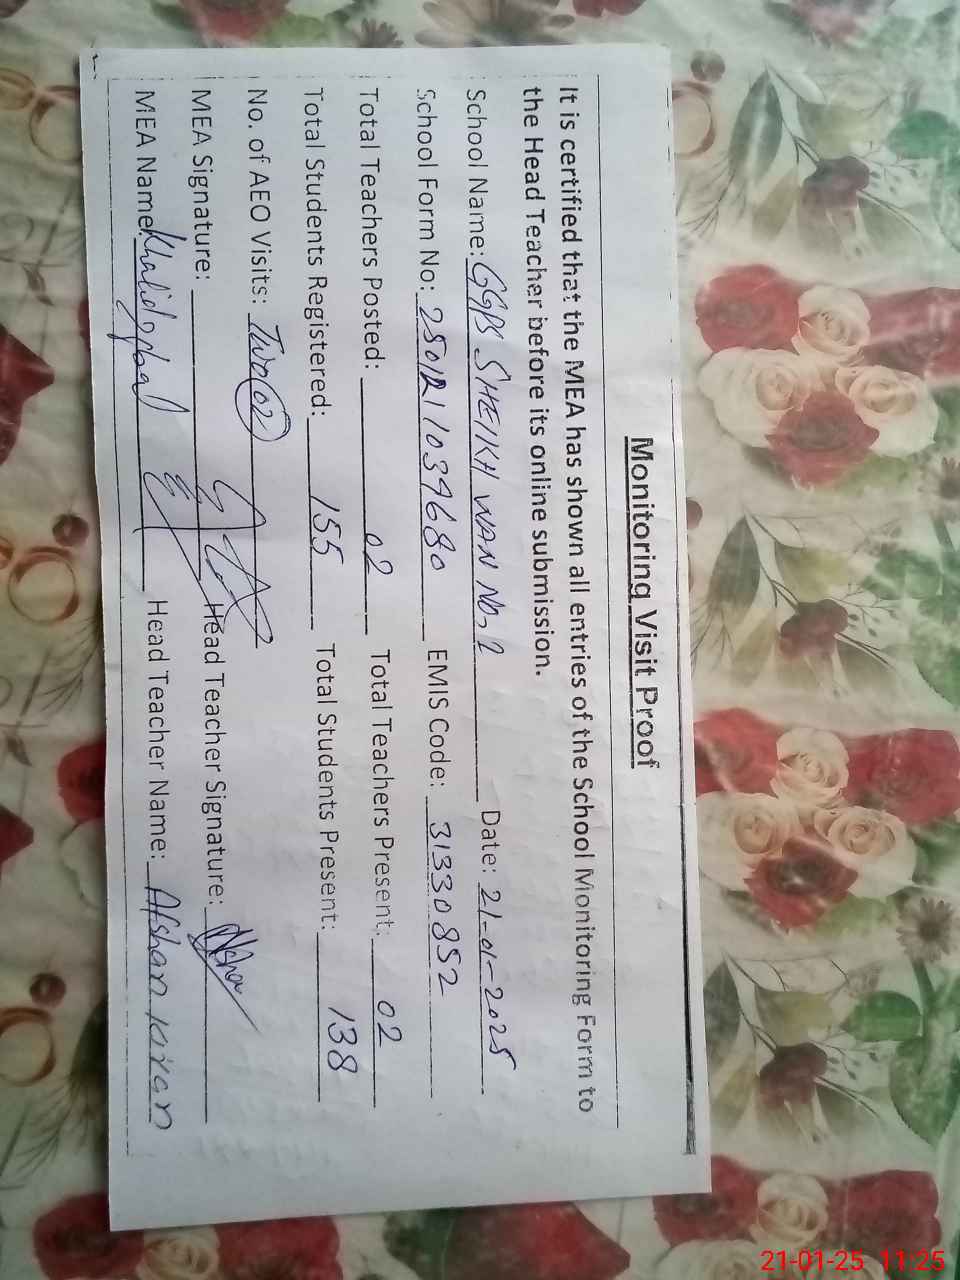 Monitoring Visit Proof
It is certified that the MEA has shown all entries of the School Monitoring Form to
the Head Teacher before its online submission.
School Name: GGPS SHEIKH WAN NO, 2 Date: 21-01-2025
School Form No: EMIS Code: 31330852
Total Teachers Posted: 02 Total Teachers Present: 02
Total Students Registered: 155 Total Students Present: 138
No. of AEO Visits: Two 02
MEA Signature: Head Teacher Signature:
MEA Name: Khalid Iqbal Head Teacher Name: Afshan Kiran
21-01-25 11:25